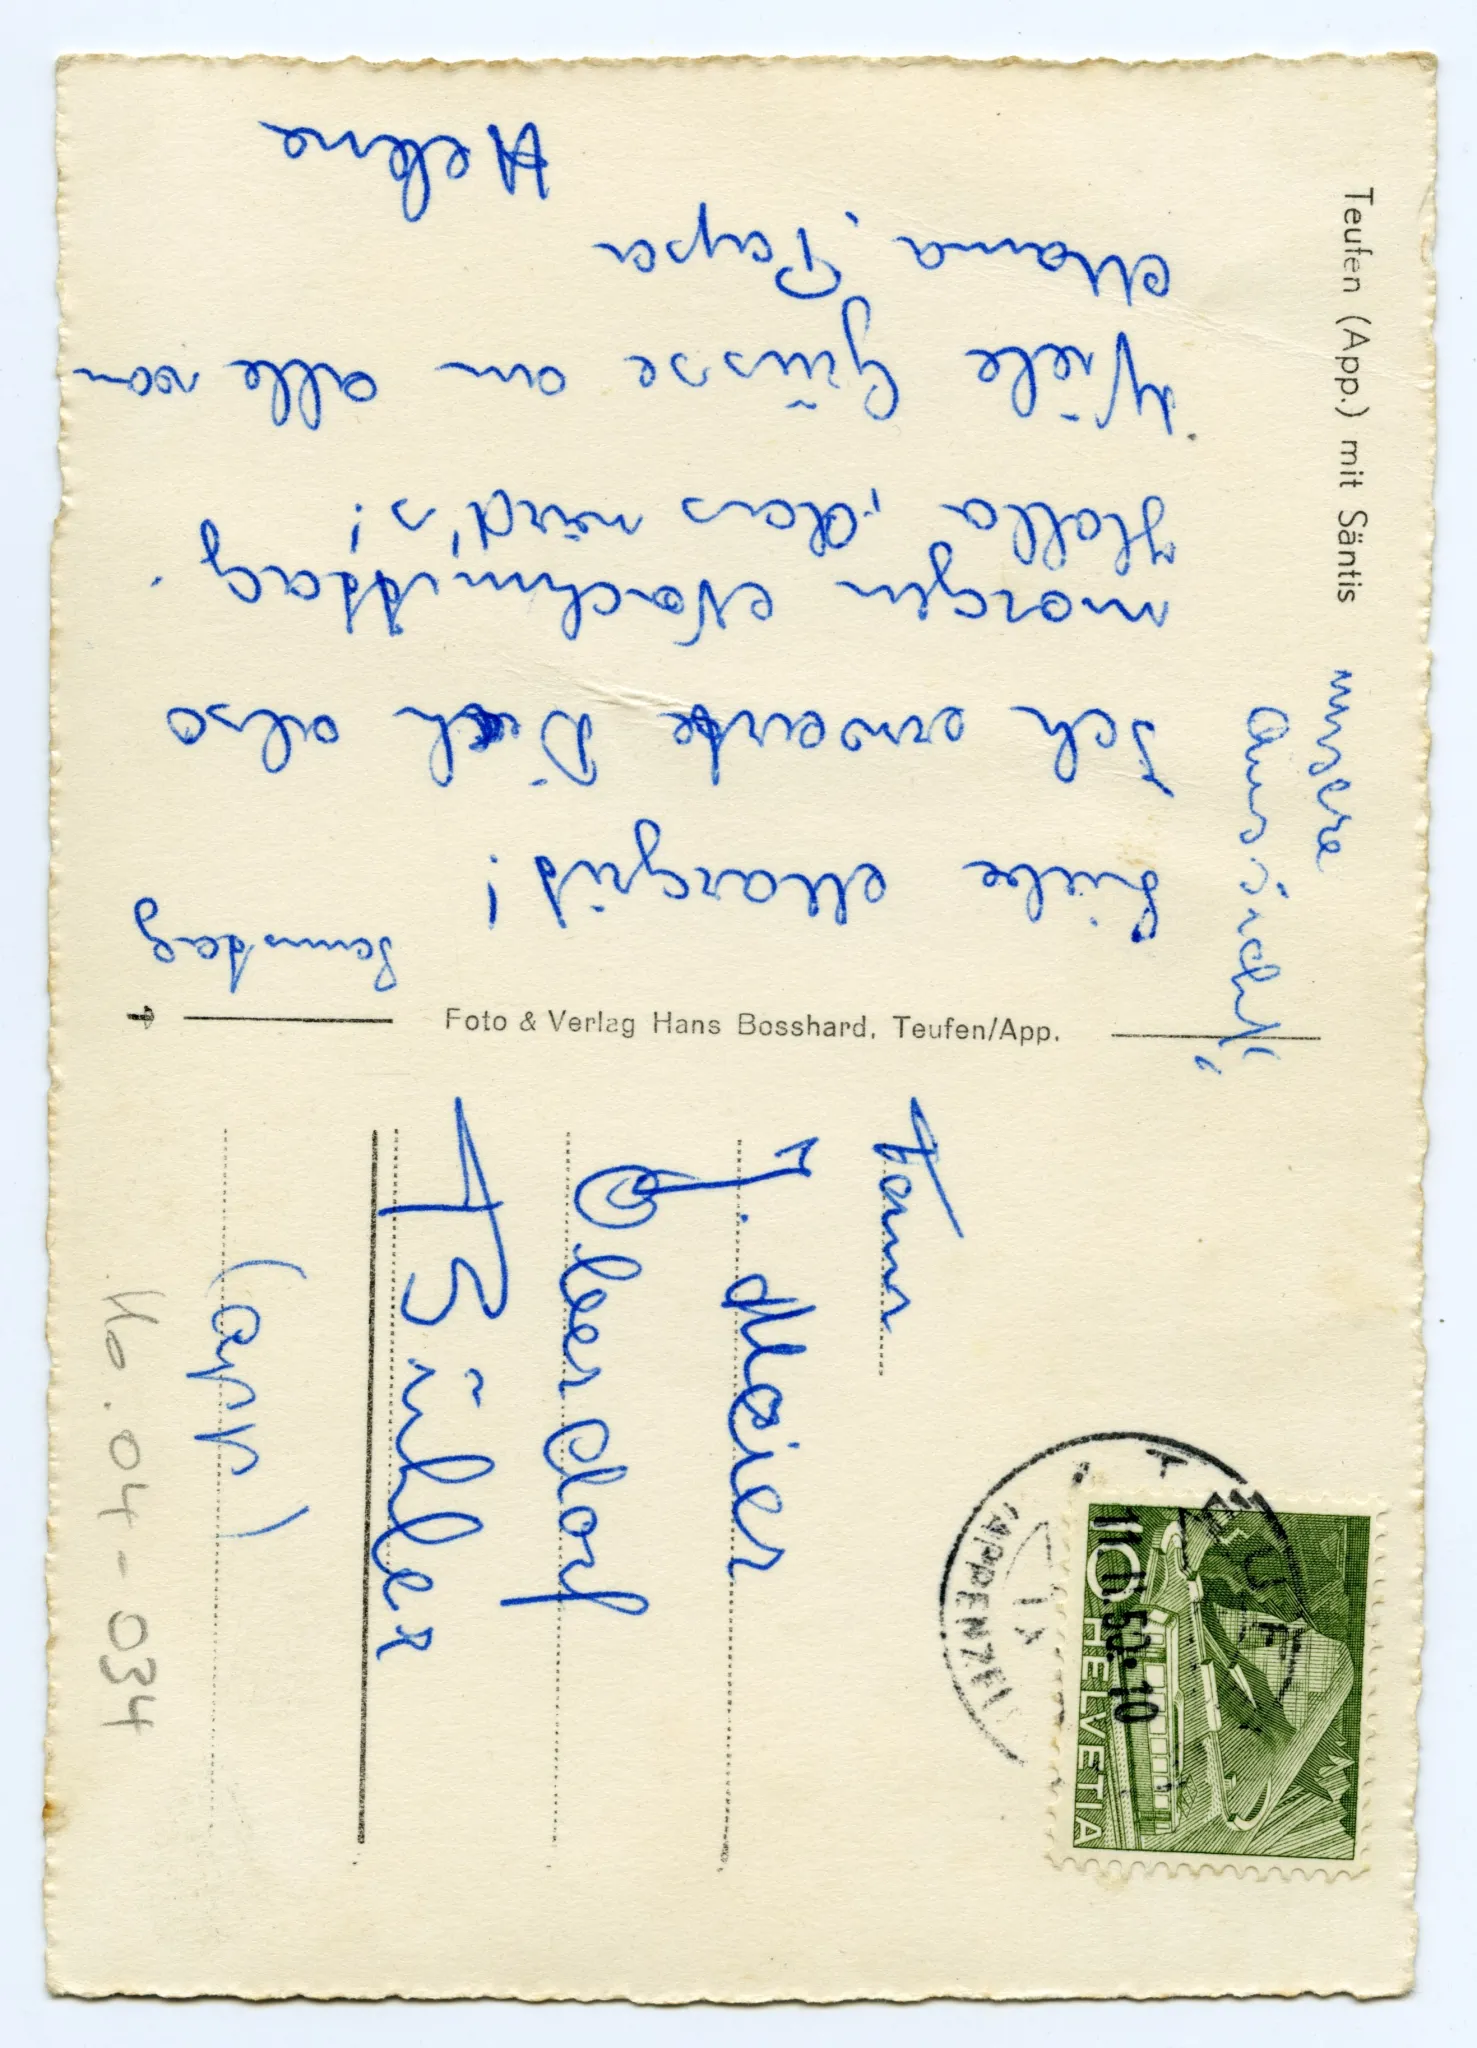 Teufen (App.) mit Säntis
unsere
Aussicht!
Samstag
Liebe Margrit!
Ich erwarte Dich also
morgen Nachmittag.
Holla, das wird's!
Viele Grüsse an alle von
Mama, Papa
Helene
Foto & Verlag Hans Bosshard, Teufen/App.
Fam
J. Meier
Oberdorf
Bühler
(App)
Ho.04-034
TEUFEN
(APPENZELL)
11.50.10
10
HELVETIA